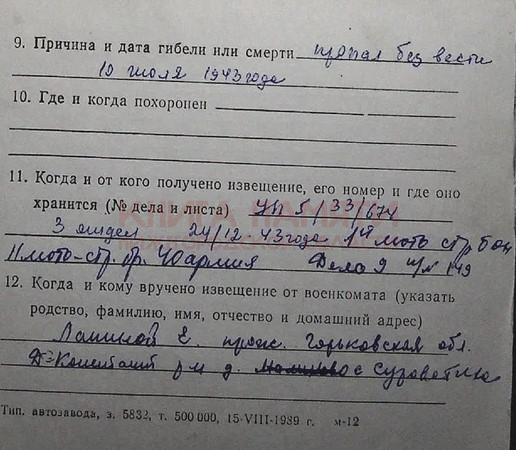 9. Причина и дата гибели или смерти пропал без вести
10 июля 1943 года
10. Где и когда похоронен
11. Когда и от кого получено извещение, его номер и где оно
хранится (№ дела и листа) Уп 5/33/674
3 24/12-43 года 1й мото стр бат
11 мото-стр. бр. 10 армия Дело 9 149
12. Когда и кому вручено извещение от военкомата (указать
родство, фамилию, имя, отчество и домашний адрес)
Е. прож. Горьковская обл.
р-н д. с
КНИГА ПАМЯТИ
Тип. автозавода, з. 5832, т. 500 000, 15-VIII-1989 г. м-12